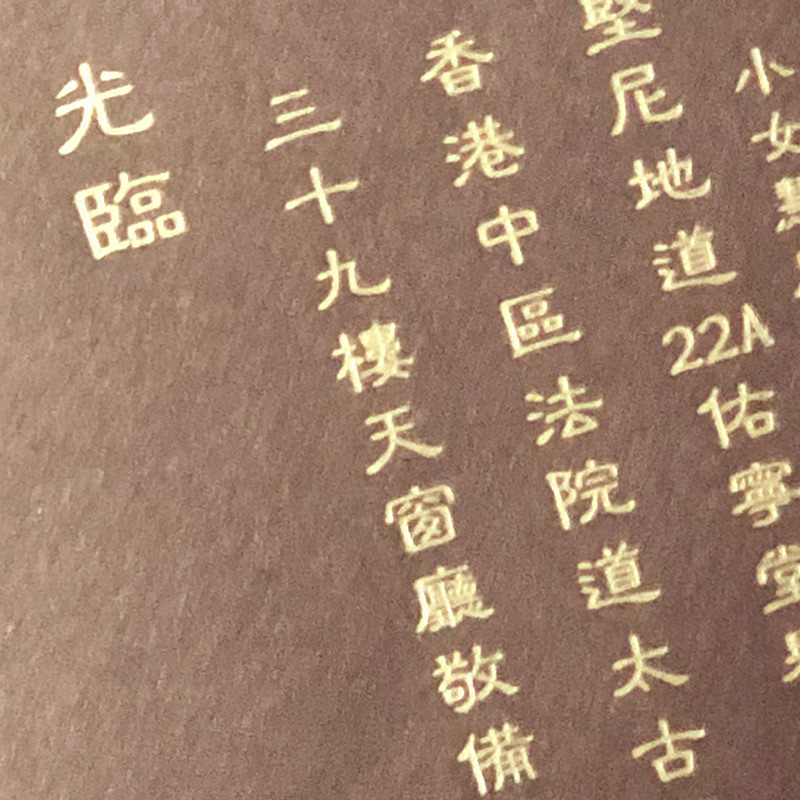 小女慧
堅尼地道22A佑寧堂
香港中區法院道太古
三十九樓天窗廳敬備
光臨